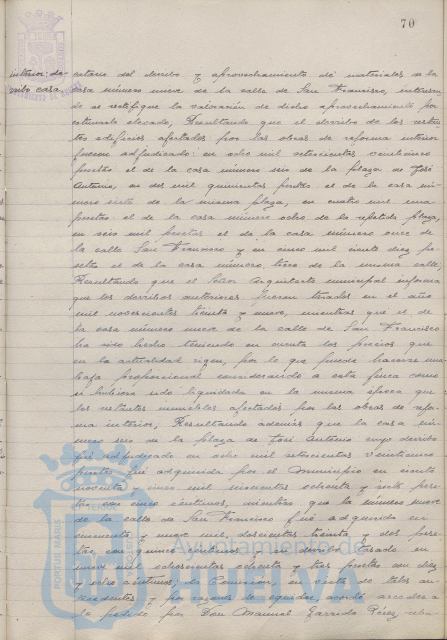 70
interior; de-
rribo casa.
catario del derribo y aprovechamiento de materiales de la
casa número nueve de la calle de San Francisco,
de se rectifique la valoración de dicho aprovechamiento por
estimarla elevada, Resultando que el derribo de los restan-
tes edificios afectados por las obras de reforma interior
fueron adjudicados: en ocho mil setecientas veinticinco
pesetas el de la casa número seis de la plaza de José
Antonio, en dos mil quinientas pesetas el de la casa nú-
mero siete de la misma plaza, en cuatro mil una
pesetas el de la casa número ocho de la repetida plaza,
en seis mil pesetas el de la casa número once de
la calle San Francisco y en cinco mil ciento diez pe-
setas el de la casa número trece de la misma calle,
Resultando que el Señor Arquitecto municipal informa
que los derribos anteriores fueron tasados en el año
mil novecientos treinta y nueve, mientras que el de
la casa número nueve de la calle de San Francisco
ha sido hecho teniendo en cuenta los precios que
en la actualidad rigen, por lo que puede hacerse una
baja proporcional considerando a esta finca como
si hubiera sido liquidada en la misma época que
los restantes inmuebles afectados por las obras de refor-
ma interior, Resultando además que la casa nú-
mero seis de la plaza de José Antonio cuyo derribo
fué adjudicado en ocho mil setecientas veinticinco
pesetas fué adquirida por el Municipio en ciento
noventa y cinco mil seiscientas ochenta y seis pese-
tas con cinco céntimos, mientras que la número nueve
de la calle de San Francisco fué adquirida en
cincuenta y nueve mil doscientas treinta y dos pese-
tas, con quince céntimos y su derribo tasado en
nueve mil ochocientas ochenta y tres pesetas con diez
y ocho céntimos; la Comisión, en vista de tales an-
tecedentes y por razones de equidad, acordó acceder a
lo pedido por Don Manuel Garrido Pérez
Ayuntamiento de
HUELVA
PORTUS MARIS